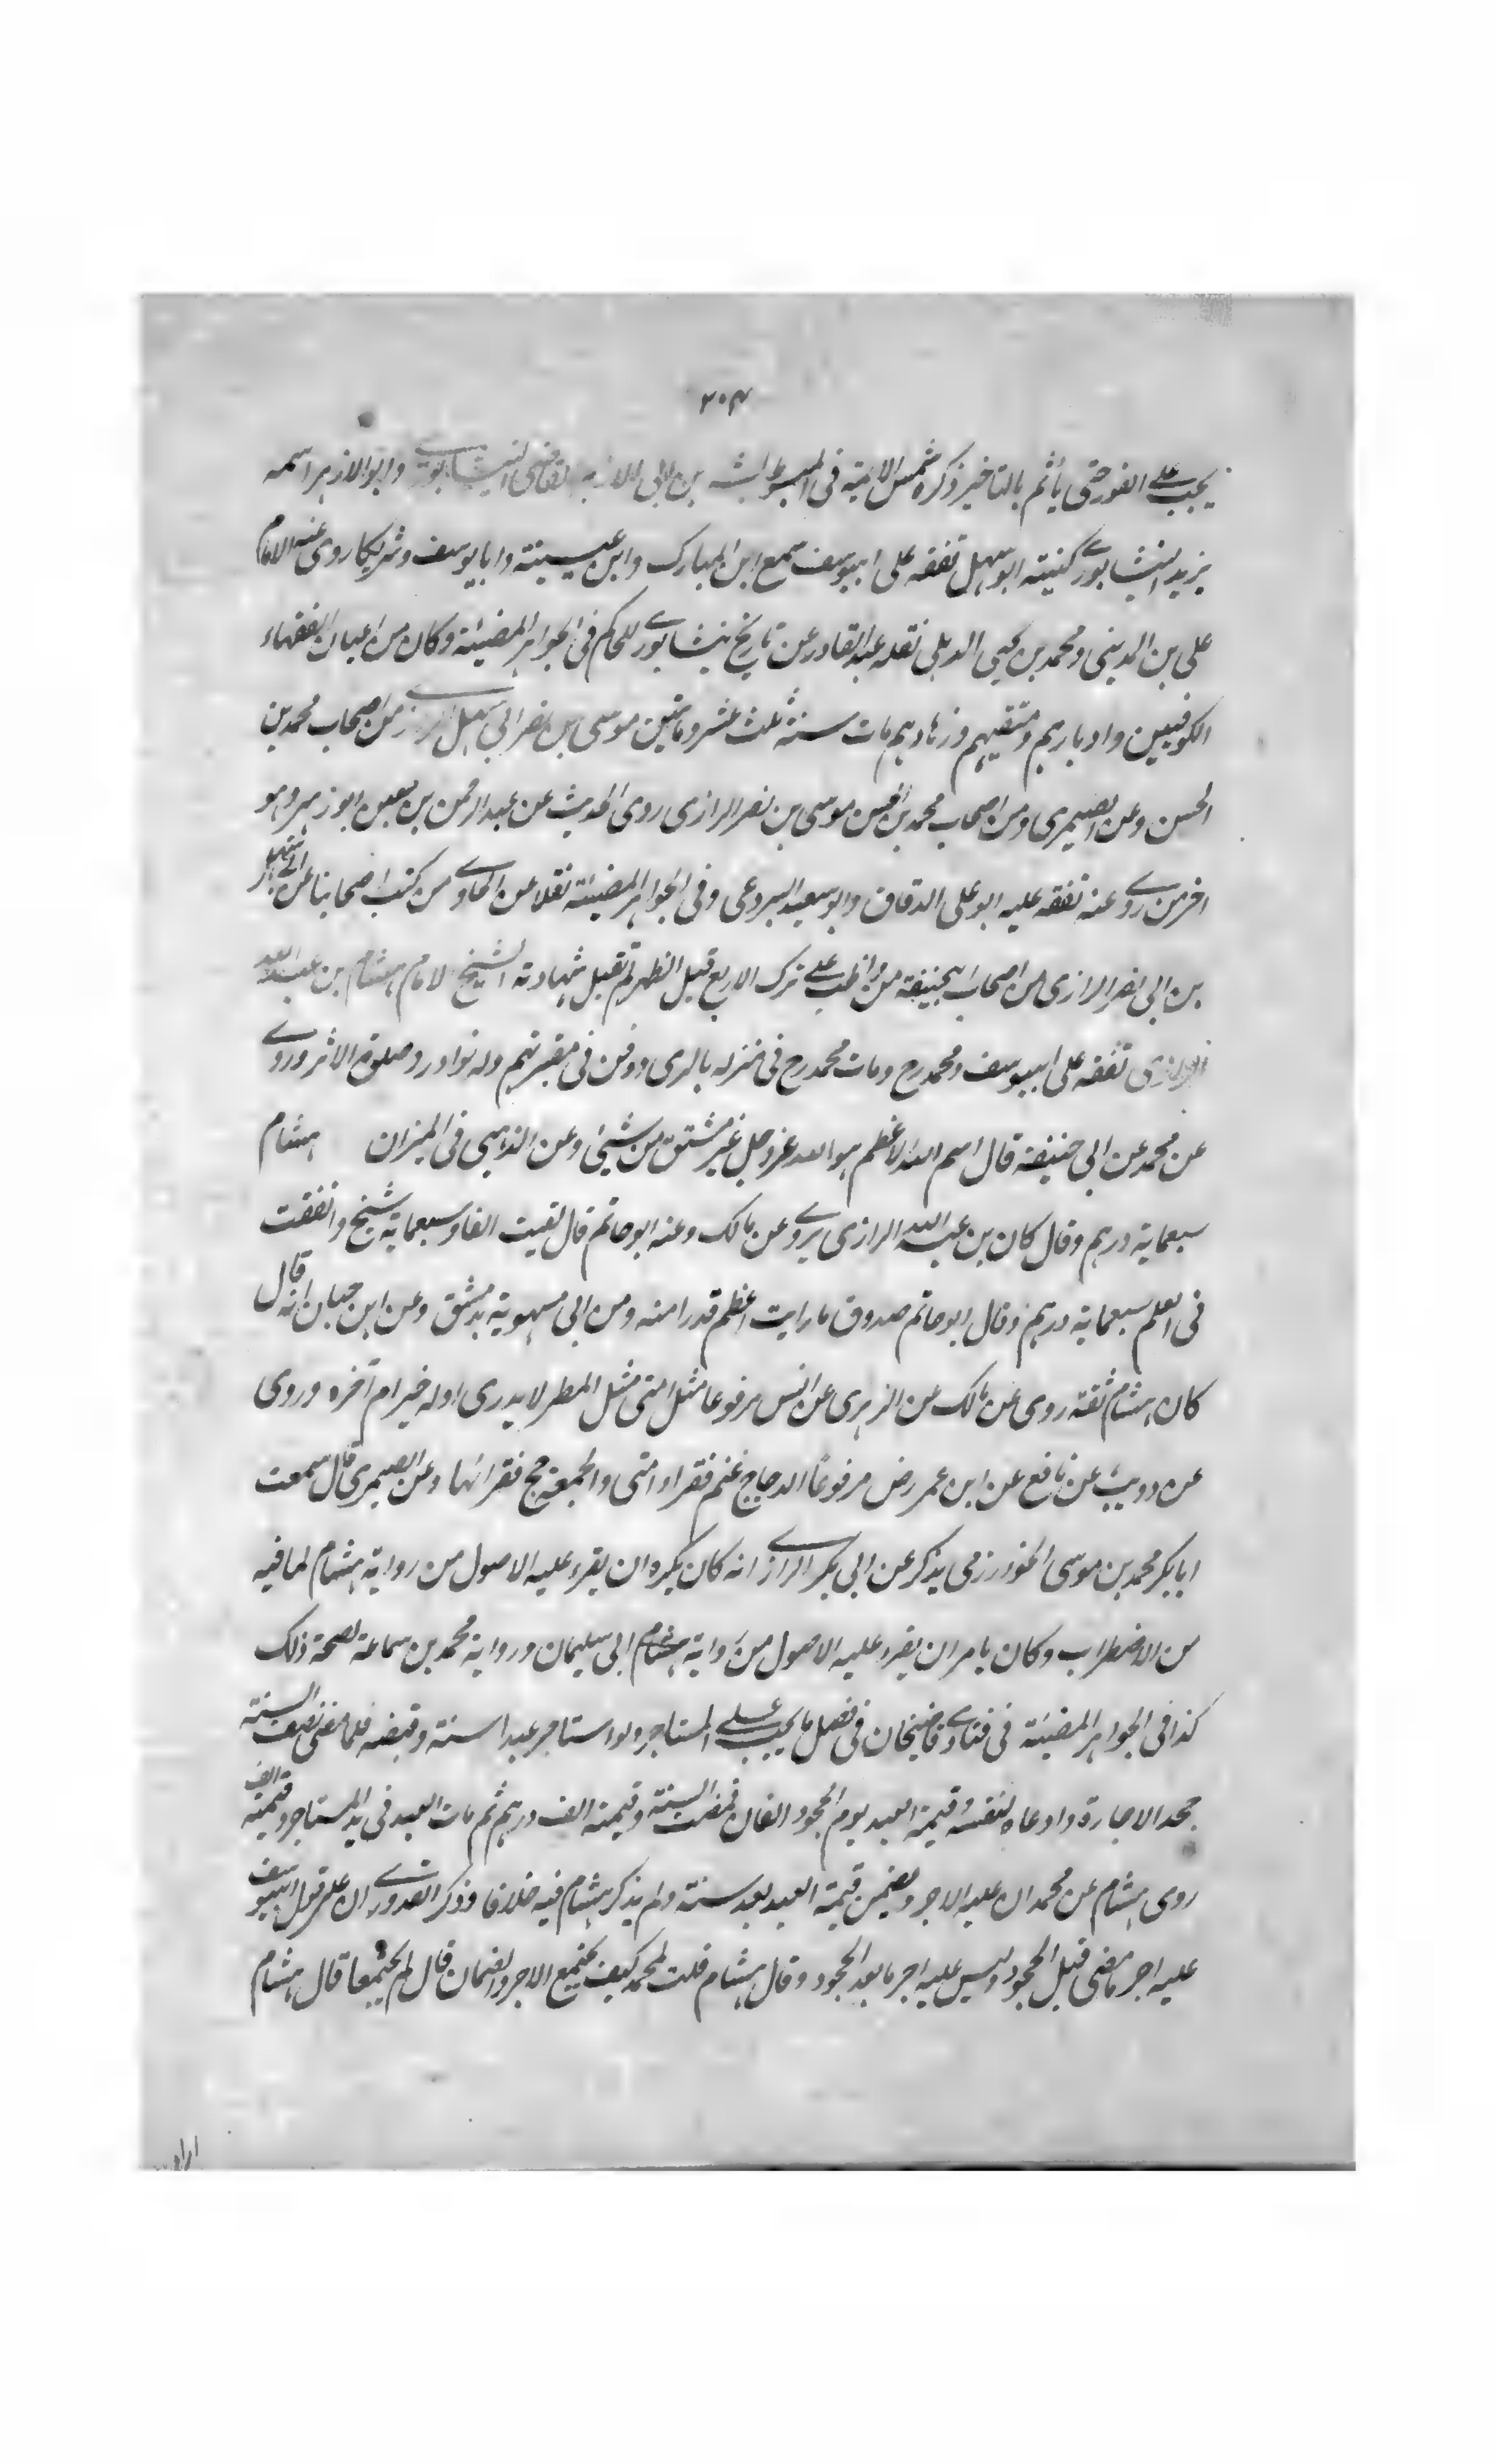 ٢٠٤
يجب على الفور حتى يأثم بالتاخير ذكره شمس الائمة فى المبسوط بشر بن ابى الازهر القاضى النيشابورى وابو الازهر اسمه
يزيد النيشابورى كنيته ابو سهل تفقه على ابييوسف سمع ابن المبارك وابن عيينة وابايوسف وشريكا روى عنه الامام
على بن المدينى ومحمد بن يحيى الذهلى نقله عبد القادر عن تاريخ نيشابور للحاكم فى الجواهر المضيئة وكان من اعيان الفقهاء
الكوفيين وادبارهم ومتقيهم وزهادهم مات سنة ثلث عشر ومايتين موسى بن نصر ابى سهل الرازى من اصحاب محمد بن
الحسن وعن الصيمرى ومن اصحاب محمد بن الحسن موسى بن نصر الرازى روى الحديث عن عبد الرحمن بن معين ابو زهير وهو
اخر من روى عنه تفقه عليه ابو على الدقاق وابو سعيد البردعى وفى الجواهر المضيئة نقلا عن الحاوى من كتب اصحابنا عن ابى سهل
بن ابى نصر الرازى من اصحاب ابيحنيفة من واظب على ترك الاربع قبل الظهر لم تقبل شهادته الشيخ الامام هشام بن عبيد الله
الرازى تفقه على ابييوسف ومحمد رح ومات محمد رح فى منزله بالرى ودفن فى مقبرتهم وله نوادر وصلوة الاثر وروى
عن محمد عن ابى حنيفة قال اسم الله الاعظم هو الله عز وجل غير مشتق من شيئ وعن الذهبى فى الميزان هشام
سبعماية درهم وقال كان بن عبيد الله الرازى يروى عن مالك وعنه ابو حاتم قال لقيت الفا وسبعماية شيخ وانفقت
فى العلم سبعماية درهم وقال ابو حاتم صدوق ما رايت اعظم قدرا منه ومن ابى مسهوية بدمشق وعن ابن حبان انه قال
كان هشام ثقة روى عن مالك عن الزهرى عن انس مرفوعا مثل امتى مثل المطر لا يدرى اوله خير ام آخره وروى
عن دويب عن نافع عن ابن عمر رض مرفوعا الدجاج غنم فقراء امتى والجمعة حج فقرائها وعن الصيمرى قال سمعت
ابابكر محمد بن موسى الخوارزمى يذكر عن ابى بكر الرازى انه كان يكره ان يقرء عليه الاصول من رواية هشام لما فيه
من الاضطراب وكان يامر ان يقرء عليه الاصول من رواية ابى سليمان ورواية محمد بن سماعة لصحة ذلك
كذا فى الجواهر المضيئة فى فتاوى قاضيخان فى فصل ما يجب على المستاجر ولو استاجر عبدا سنة وقبضه فلما مضى نصف السنة
جحد الاجارة وادعاه لنفسه وقيمة العبد يوم الجحود الفان فمضت السنة وقيمته الف درهم ثم مات العبد فى يد المستاجر وقيمته الف
روى هشام عن محمد ان عليه الاجر ويضمن قيمة العبد بعد سنة ولم يذكر هشام فيه خلافا وذكر القدورى ان على قول ابييوسف
عليه اجر ما مضى قبل الجحود وليس عليه اجر ما بعد الجحود وقال هشام قلت لمحمد كيف يجتمع الاجر والضمان قال لم يجتمعا قال هشام